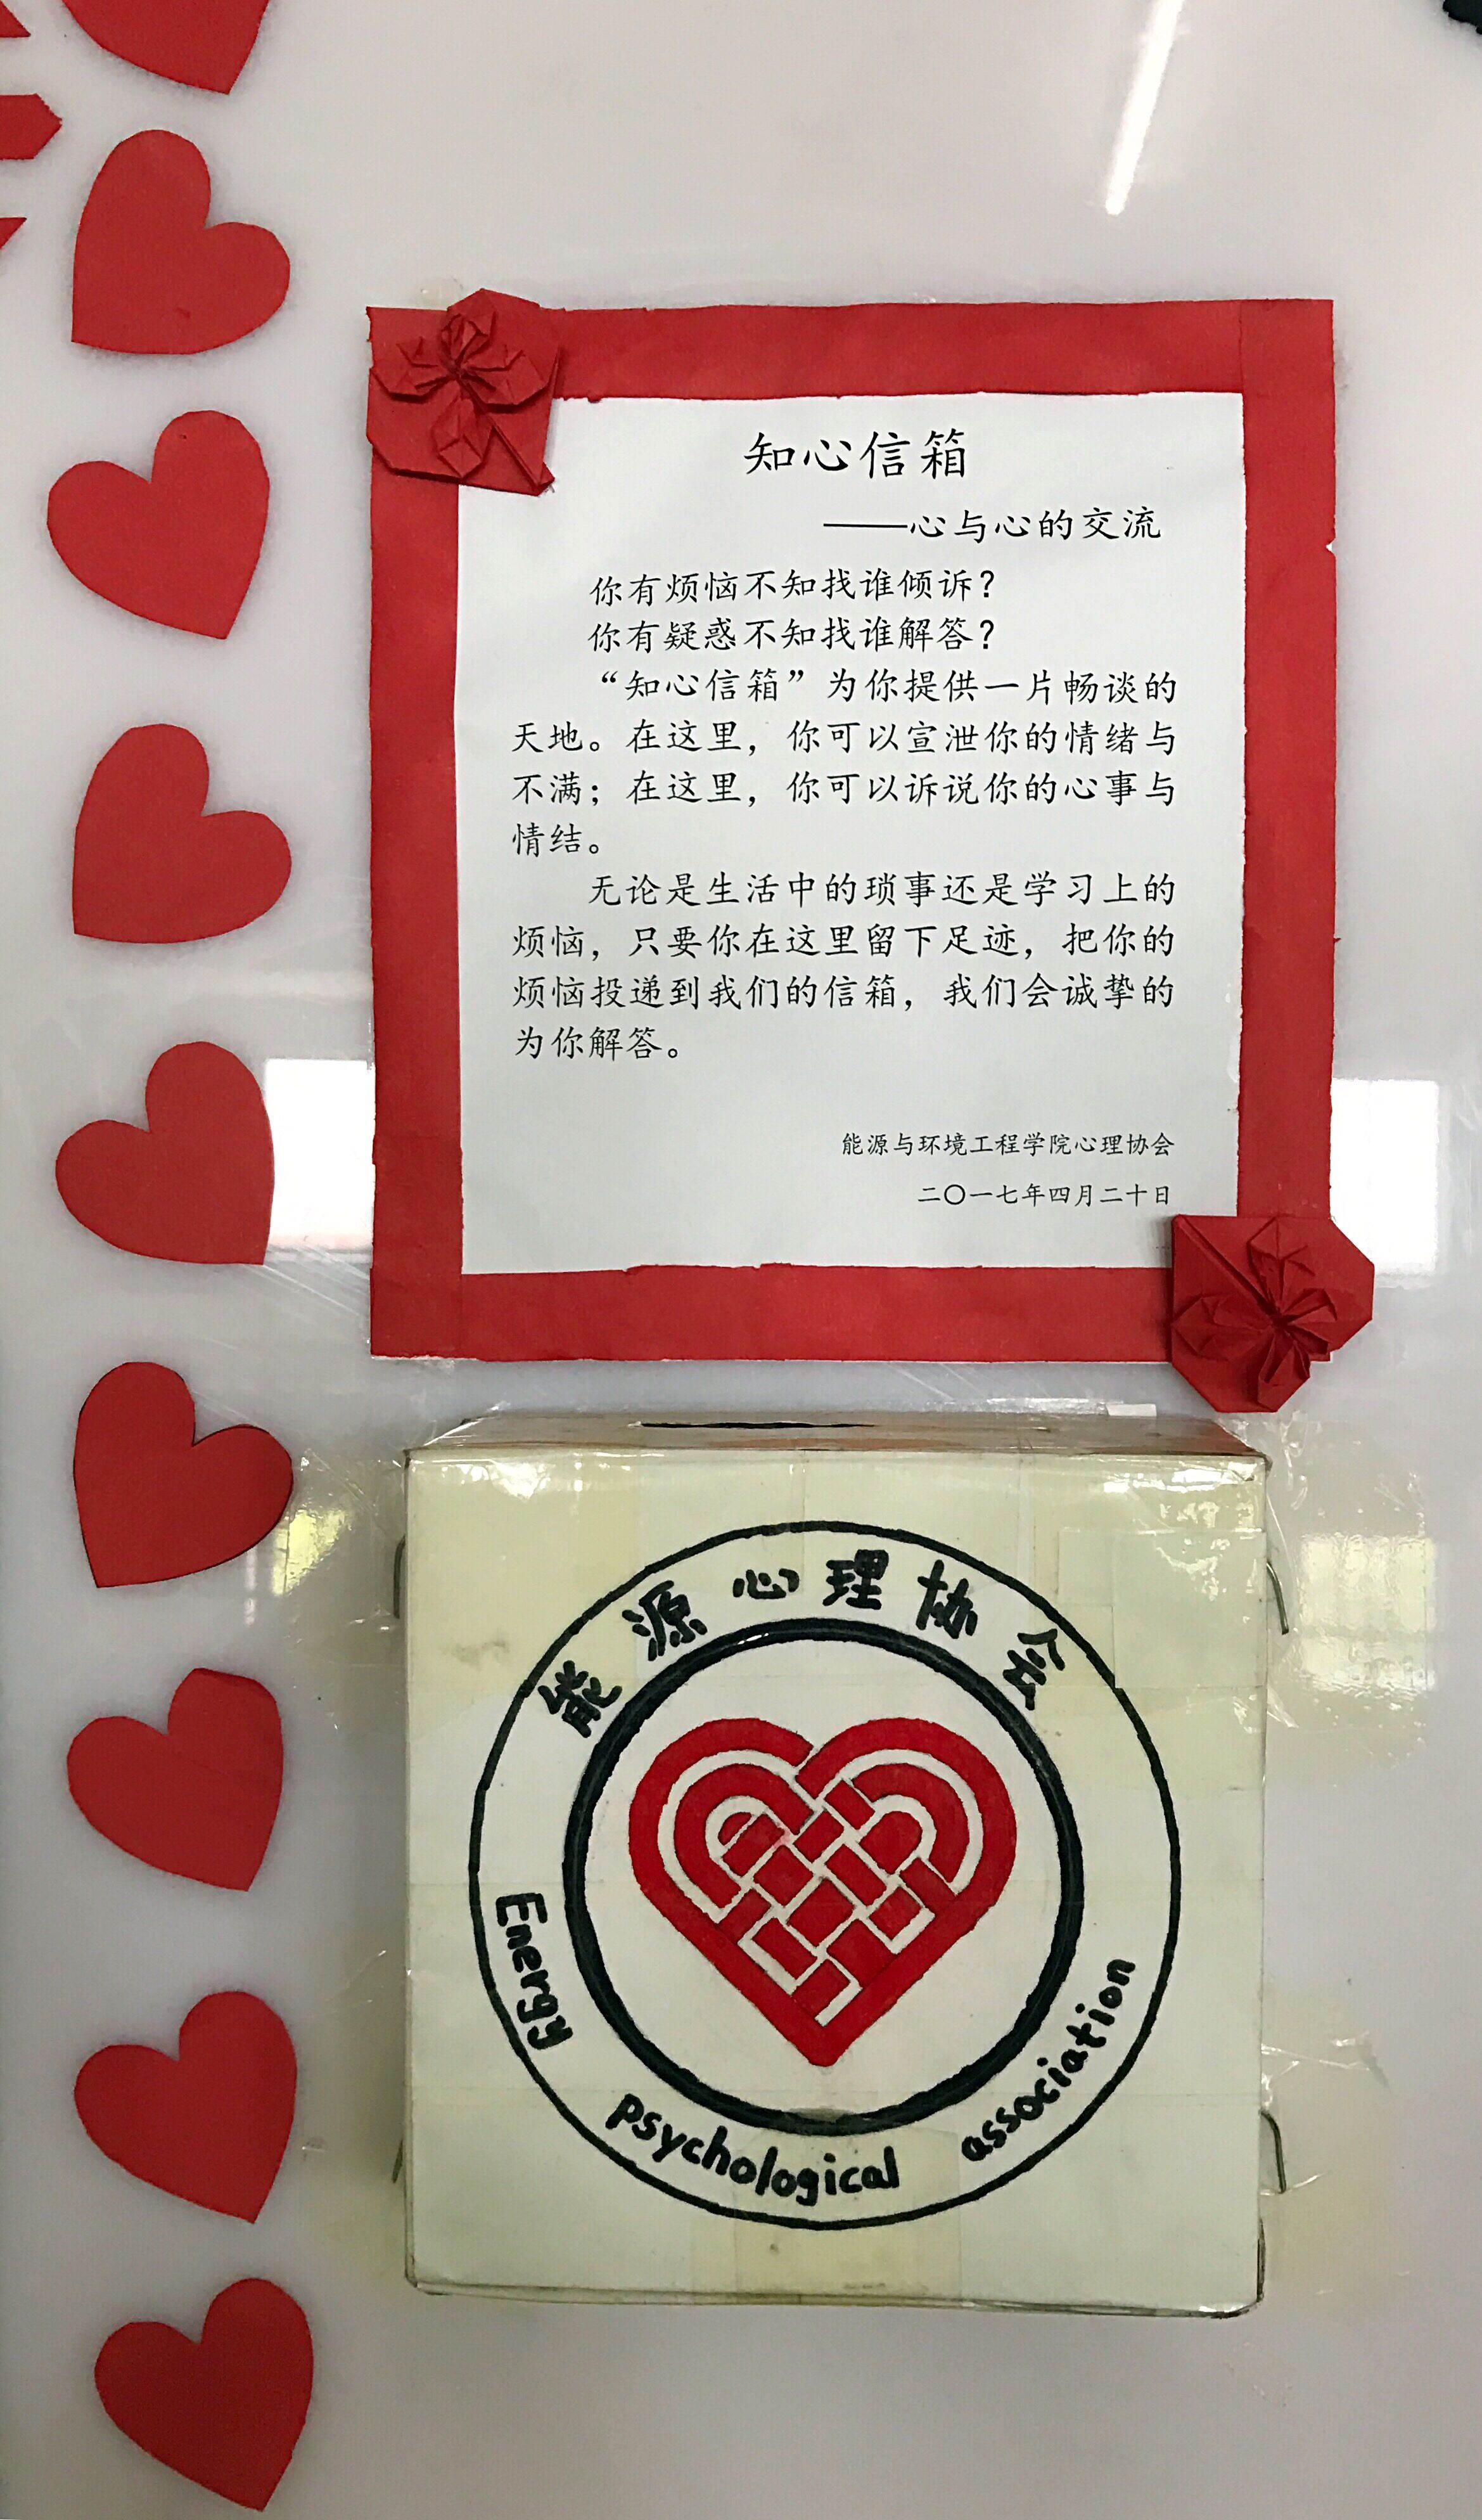 知心信箱
——心与心的交流
你有烦恼不知找谁倾诉？
你有疑惑不知找谁解答？
“知心信箱”为你提供一片畅谈的
天地。在这里，你可以宣泄你的情绪与
不满；在这里，你可以诉说你的心事与
情结。
无论是生活中的琐事还是学习上的
烦恼，只要你在这里留下足迹，把你的
烦恼投递到我们的信箱，我们会诚挚的
为你解答。
能源与环境工程学院心理协会
二〇一七年四月二十日
能源心理协会
Energy psychological association